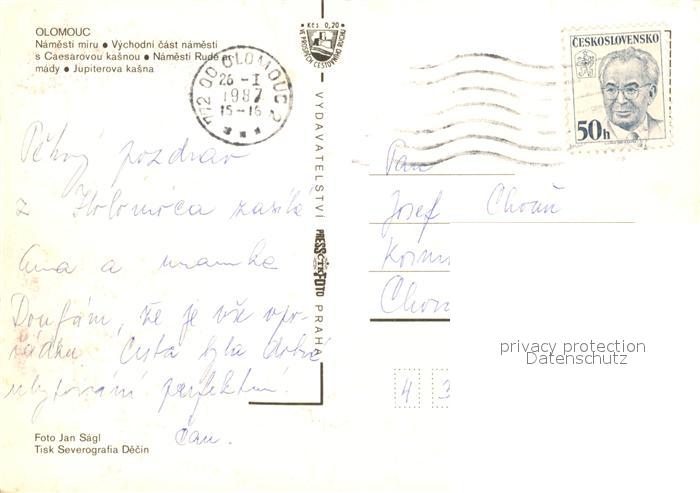 OLOMOUC
Náměstí míru ● Východní část náměstí
s Caesarovou kašnou ● Náměstí Rudé ar-
mády ● Jupiterova kašna
Kčs 0,20
VE PROSPĚCH CESTOVNÍHO RUCHU
772 00 OLOMOUC 2
26 -I
1987
15-16
ČESKOSLOVENSKO
50h
Pěkný pozdrav
z Holomóca zasílá
a mamka
Doufám, že je vše v po-
řádku Cesta byla dobrá
ubytování perfektní.
Čau.
Pan
Josef
Chom
VYDAVATELSTVÍ
PRESSFOTO
PRAHA
privacy protection
Datenschutz
4 3
Foto Jan Ságl
Tisk Severografia Děčín